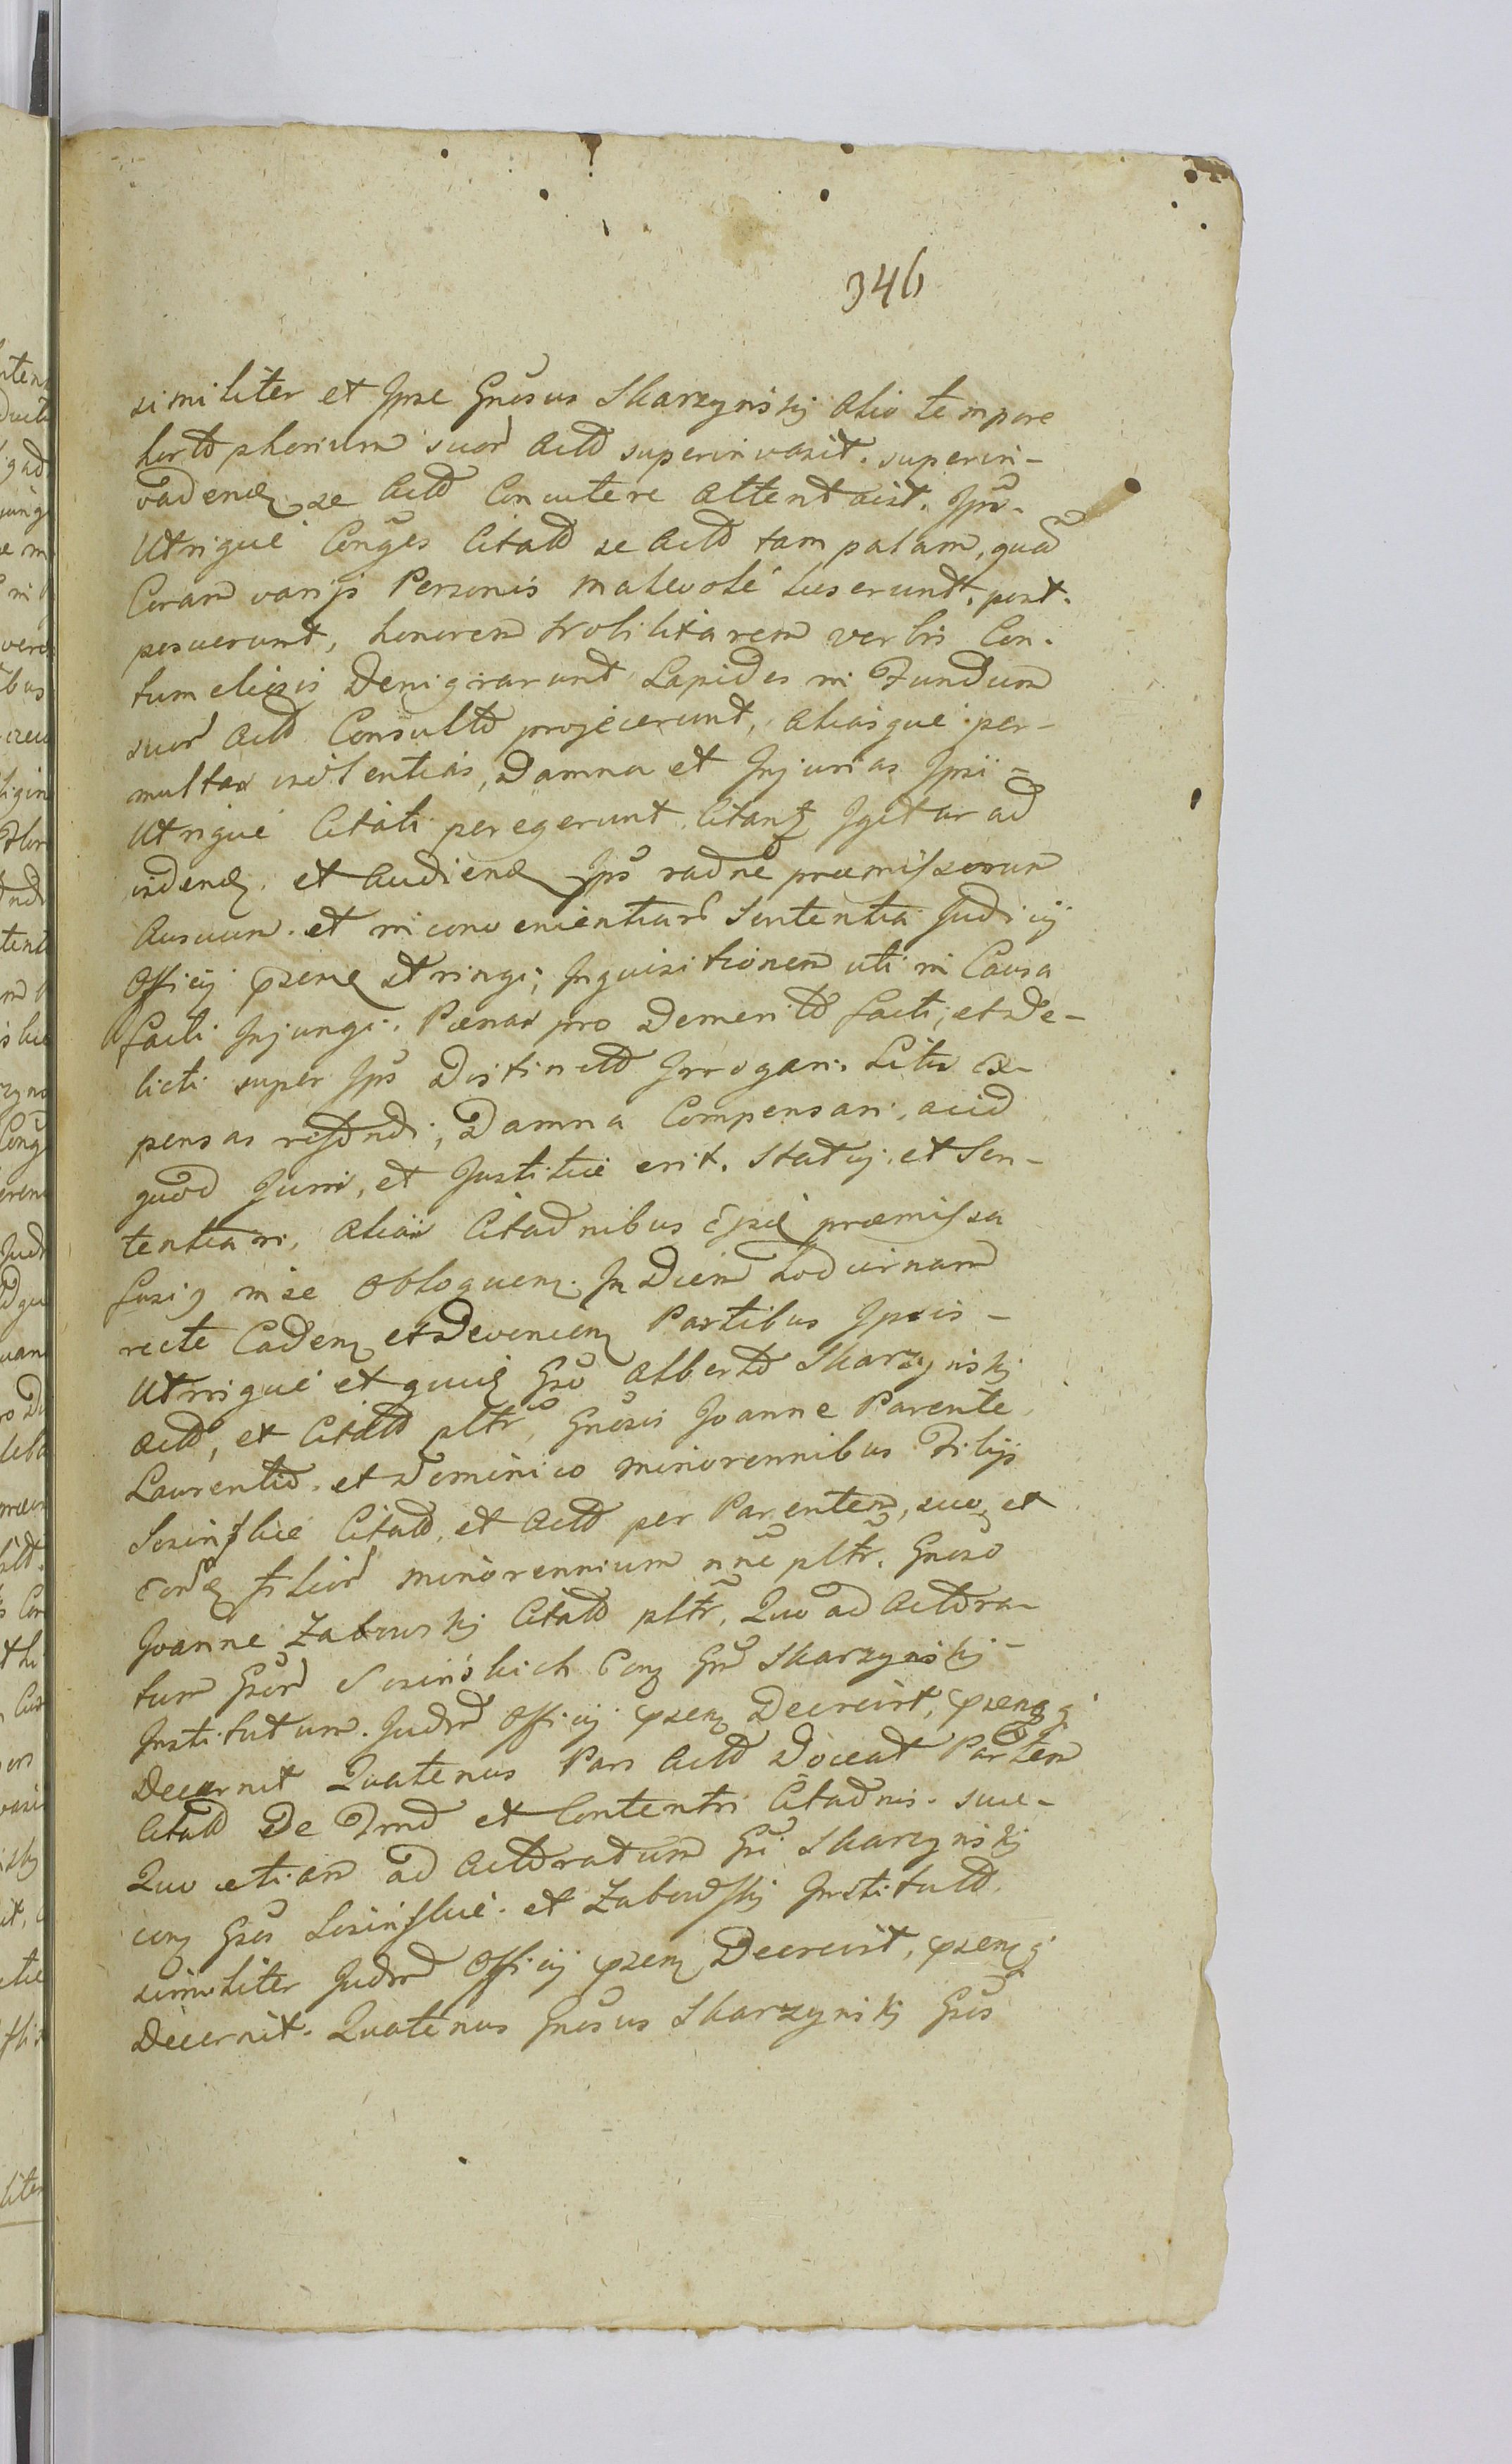 346
similiter et Ipse Gnosus Skarzynskj alio tempore
hortd phorium suor̃ Actd superinvasit. superin-
vadenđ se Actd Concutere attentavit. Ips̃.
Utrique Congẽs Citatd se Actd tam palam, quam̃
Coram varijs Personis malevole luserunt. post.
posuerunt, honorem Nobilitarem verbis Con-
tumeliosis Denigrarunt Lapides in Fundum
suor̃ Actd Consultd projecerunt, aliasque per-
multas violentias, Damna et Injurias Ipsi-
Utrique Citati peregerunt. Citanꝫ Igitur ad
videnđ. et Audienđ Ips̃ radne præmissorum
Ausuum. et inconvenientiar̃ Sententia Judicij
Officij psenꝫ stringi; Inquisitionem uti in Causa
facti Injungi. Pœnas pro Demeritd facti, et De-
licti super Ips̃ Distinctd Irrogari. Litis Ex-
pensas refundi; Damna Compensari, acid
quod Juris, et Justitiæ erit. Statuj. et Sen-
tentiari, aliàs Citadnibus Ipsẽ præmissa
fusiꝰ in se obloquenꝫ. In Diem hodiernam
recte Cadenꝫ et Devenienꝫ Partibus Ipsis-
Utrisque et quidẽ Gso Albertd Skarzynskj
Actd, et Citatd pltr̃, Gnosis Joanne Parente
Laurentid. et Dominico minorennibus Filijs
Sosinskie Citatd, et Actd per Parentem, suo, et
eorđ filior̃ minorennium nñe pltr̃. Gnoso
Joanne Zabowskj Citatd pltr̃, Quo ad Actdra-
tum Gsor̃ Sosinskich Conꝫ Gm̃ Skarzynskj-
Institutum. Judm̃ Officij psenꝫ Decrevit, psenꝫqꝫ
Decernit Quatenus Pars Actd Doceat Partem
Citatd De Trmd et Contentis Citadnis. suæ-
Quo etiam ad Actdratum Gñi Skarzynskj
conꝫ Gsos Sosinskie. et Zabowskj Institutd.
similiter Judm̃ Officij psenꝫ Decrevit, psenꝫqꝫ
Decernit. Quatenus Gnosus Skarzynskj Gsos